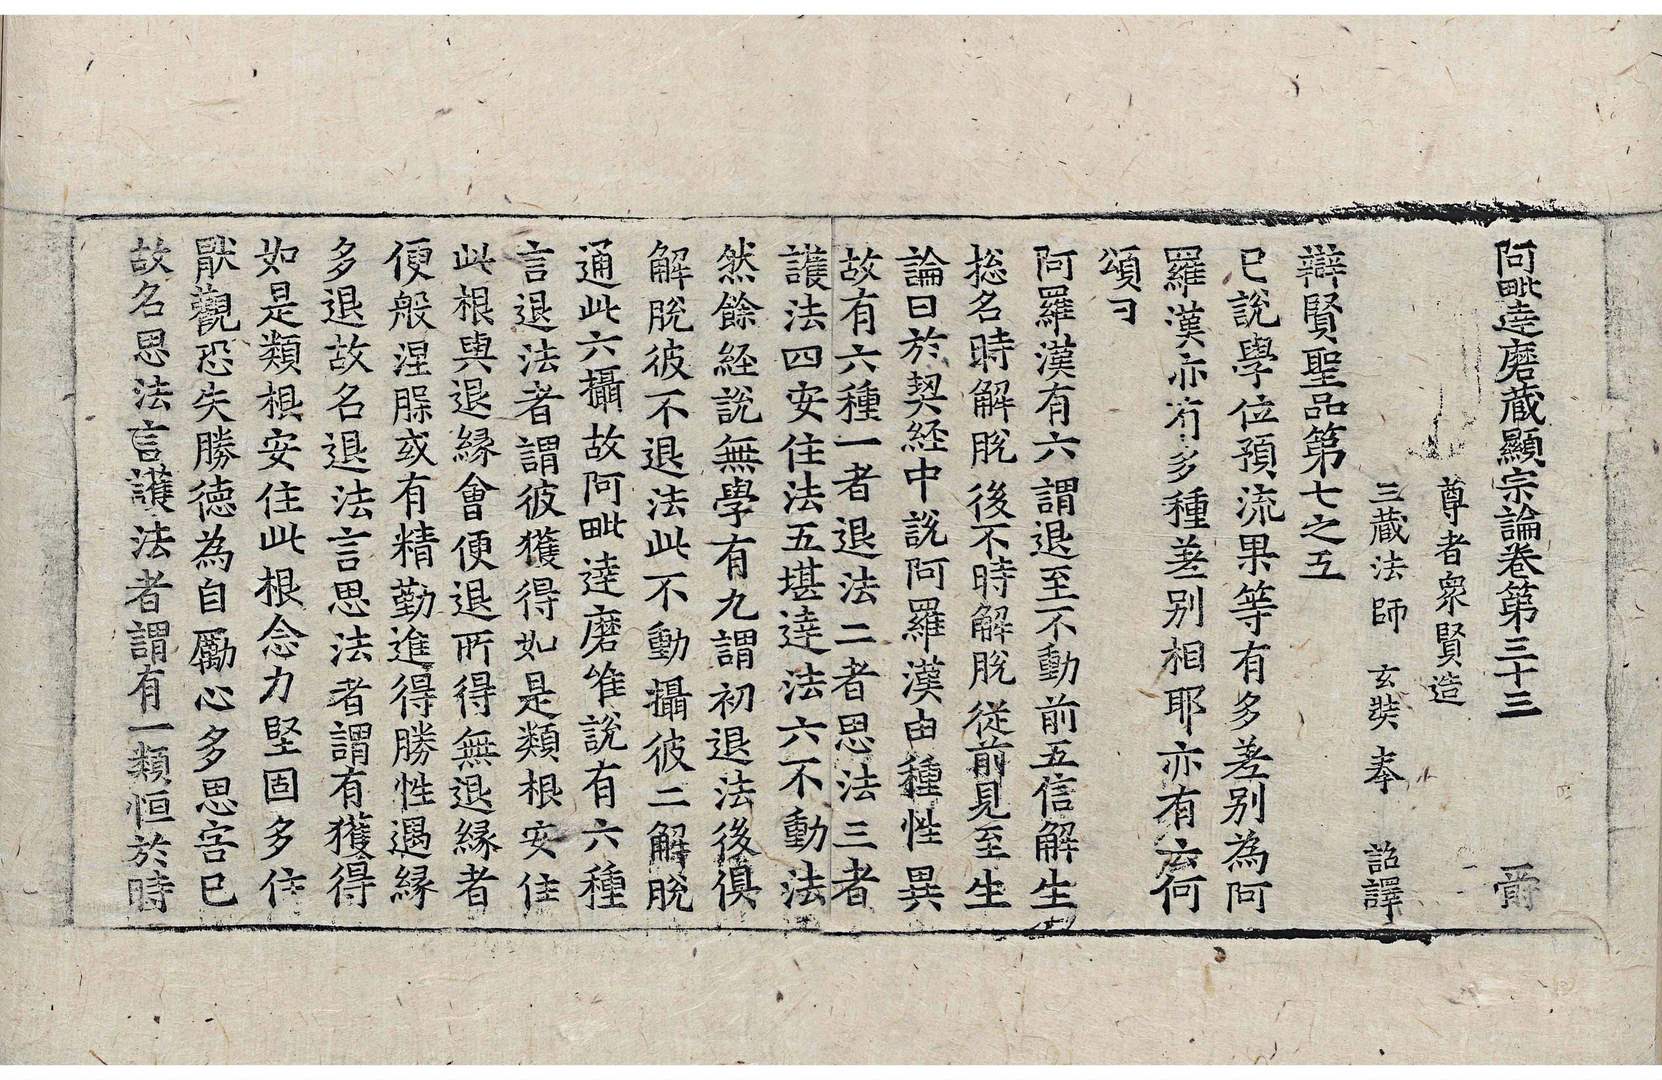 阿毗達磨藏顯宗論卷第三十三 爵
尊者衆賢造
三藏法師 玄奘 奉 詔譯
辯賢聖品第七之五
已說學位預流果等有多差別為阿
羅漢亦有多種差別相耶亦有云何
頌曰
阿羅漢有六 謂退至不動 前五信解生
捴名時解脫 後不時解脫 從前見至生
論曰於契經中說阿羅漢由種性異
故有六種一者退法二者思法三者
護法四安住法五堪達法六不動法
然餘經說無學有九謂初退法後俱
解脫彼不退法此不動攝彼二解脫
通此六攝故阿毗達磨唯說有六種
言退法者謂彼獲得如是類根安住
此根與退緣會便退所得無退緣者
便般涅槃或有精勤進得勝性遇緣
多退故名退法言思法者謂有獲得
如是類根安住此根念力堅固多住
猒觀恐失勝德為自勵心多思害己
故名思法言護法者謂有一類恒於時